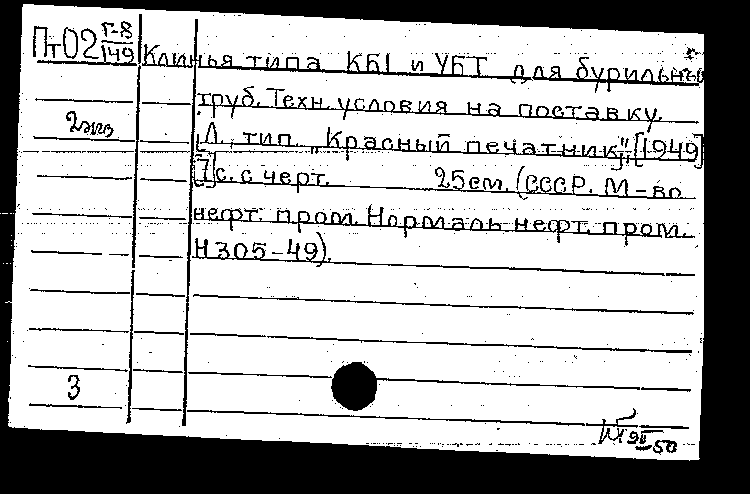 Пт02 Г-8/149 Клинья типа КБ1 и УБТ для бурильных
труб. Техн. условия на поставку.
2экз Л., тип. "Красный печатник", [1949]
[7]с. с черт. 25см. (СССР. М-во
нефт. пром. Нормаль нефт. пром.
Н305-49).
3
50